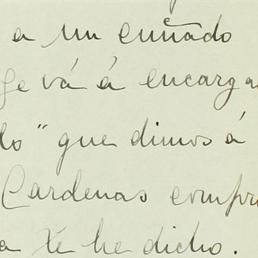 a mi cuñado
se vá á encarga
do" que dimos á
Cardenas compr
a té he dicho.